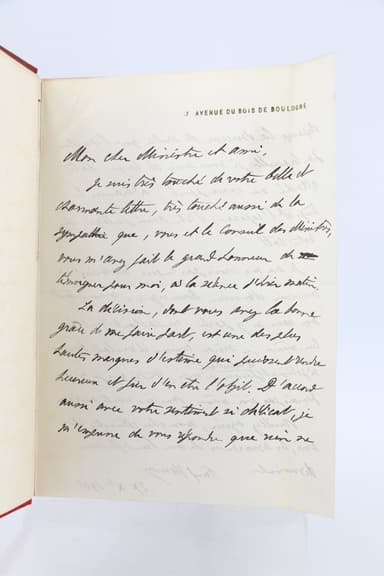 7 AVENUE DU BOIS DE BOULOGNE
Mon cher Ministre et ami,
Je suis très touché de votre belle et
charmante lettre, très touché aussi de la
sympathie que, vous et le Conseil des Ministres,
vous m'avez fait le grand honneur de
témoigner pour moi, à la séance d'hier matin.
La décision, dont vous avez la bonne
grâce de me faire part, est une des plus
hautes marques d'estime qui puisse rendre
heureux et fier d'en être l'objet. D'accord
aussi avec votre sentiment si délicat, je
m'empresse de vous répondre que rien ne